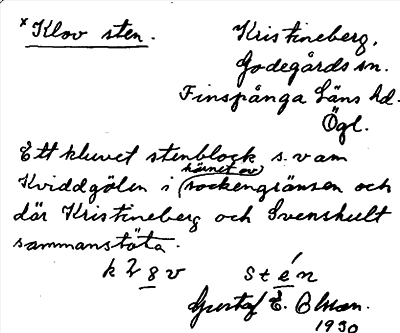 x Klov sten.
Kristineberg,
Godegårds sn.
Finspånga Läns hd.
Ögl.
Ett kluvet stenblock s.v am
Kviddgölen i (hörnet av) sockengränsen och
där Kristineberg och Svenshult
sammanstöta.
sten
Gustaf E. Olsson.
1930